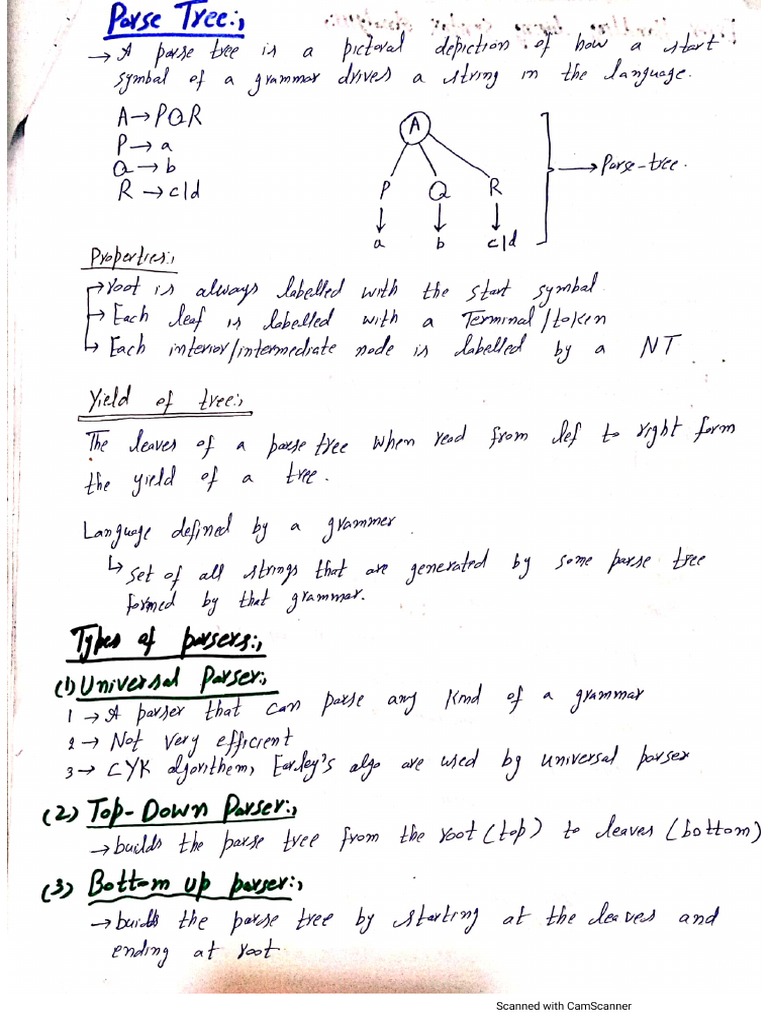 Parse Tree:,
→ A parse tree is a pictoral depiction of how a start
symbol of a grammar drives a string in the language.
A → PQR
P → a
Q → b
R → c|d
A
P Q R
a b c|d
→ Parse-tree.
Properties:,
→ root is always labelled with the start symbol.
→ Each leaf is labelled with a Terminal/token
→ Each interior/intermediate node is labelled by a NT.
Yield of tree:,
The leaves of a parse tree when read from lef to right form
the yield of a tree.
Language defined by a grammer
↳ set of all strings that are generated by some parse tree
formed by that grammar.
Types of parsers:,
(1) Universal Parser:,
1 → A parser that can parse any kind of a grammar
2 → Not very efficient
3 → CYK algorithem, Earley's algo are used by universal parser
(2) Top-Down Parser:,
→ builds the parse tree from the root (top) to leaves (bottom)
(3) Bottom up parser:,
→ builds the parse tree by starting at the leaves and
ending at root
Scanned with CamScanner